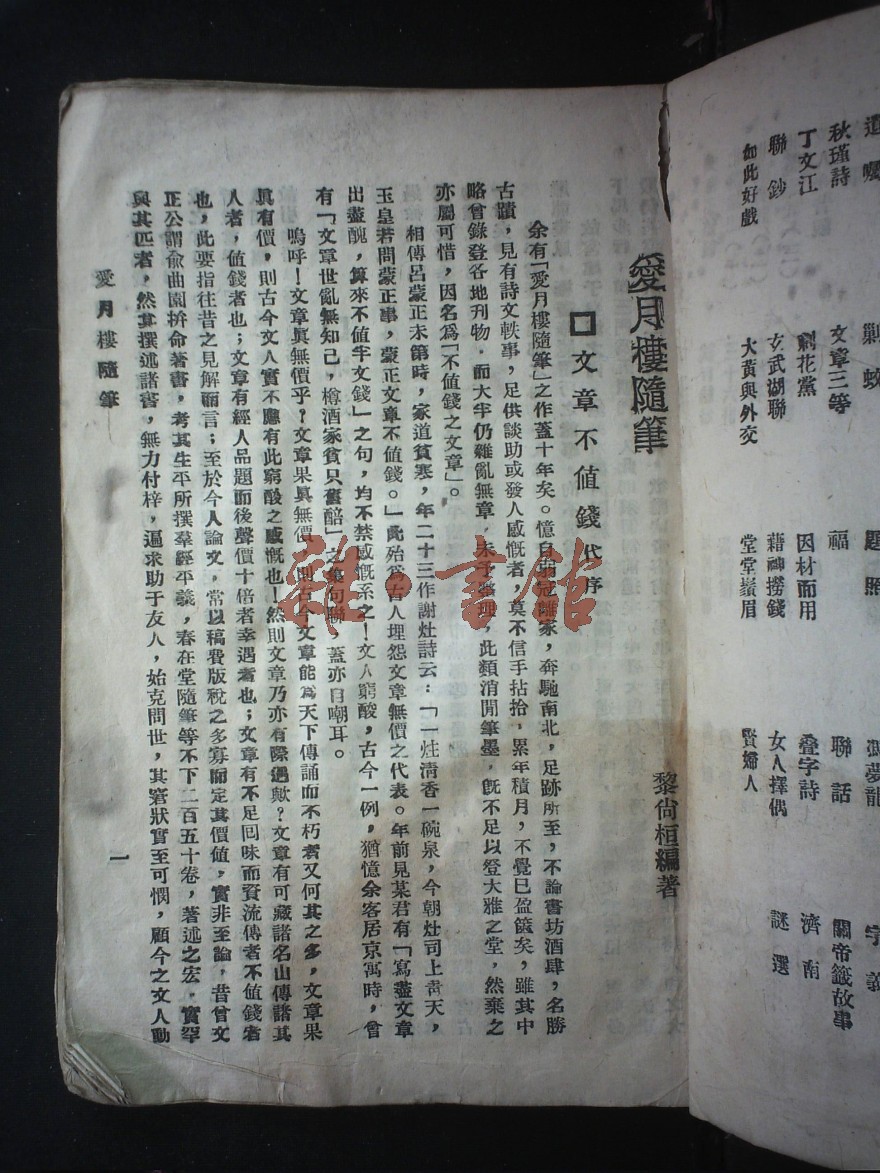 愛月樓隨筆
黎尙桓編著
文章不値錢代序
余有「愛月樓隨筆」之作蓋十年矣。憶自弱冠離家，奔馳南北，足跡所至，不論書坊酒肆，名勝
古蹟，見有詩文軼事，足供談助或發人感慨者，莫不信手拈拾，累年積月，不覺已盈篋矣，雖其中
略曾錄登各地刊物，而大半仍雜亂無章，未予整理，此類消閒筆墨，旣不足以登大雅之堂，然棄之
亦屬可惜，因名爲「不値錢之文章」。
相傳呂蒙正未第時，家道貧寒，年二十三作謝灶詩云：「一炷淸香一碗泉，今朝灶司上靑天，
玉皇若問蒙正事，蒙正文章不値錢。」此殆爲古人埋怨文章無價之代表。年前見某君有「寫盡文章
出盡醜，算來不値半文錢」之句，均不禁感慨系之！文人窮酸，古今一例，猶憶余客居京寓時，曾
有「文章世亂無知己，樽酒家貧只舊醅」之集句聯，蓋亦自嘲耳。
嗚呼！文章眞無價乎？文章果眞無價，則古今文章能爲天下傳誦而不朽者又何其之多，文章果
眞有價，則古今文人實不應有此窮酸之感慨也！然則文章乃亦有際遇歟？文章有可藏諸名山傳諸其
人者，値錢者也；文章有經人品題而後聲價十倍者幸遇者也；文章有不足回味而資流傳者不値錢者
也，此要指往昔之見解而言；至於今人論文，常以稿費版稅之多寡而定其價値，實非至論，昔曾文
正公謂兪曲園拚命著書，考其生平所撰羣經平義，春在堂隨筆等不下二百五十卷，著述之宏，實罕
與其匹者，然其撰述諸書，無力付梓，逼求助于友人，始克問世，其窘狀實至可憫，顧今之文人動
愛月樓隨筆
一
遺囑
剿蛟
題照
馮夢龍
字義
秋瑾詩
文章三等
福
聯話
關帝籤故事
丁文江
劇花黨
因材而用
疊字詩
濟南
聯鈔
玄武湖聯
藉神撈錢
女人擇偶
謎選
如此好戲
大黃與外交
堂堂鬚眉
賢婦人
雜·書館